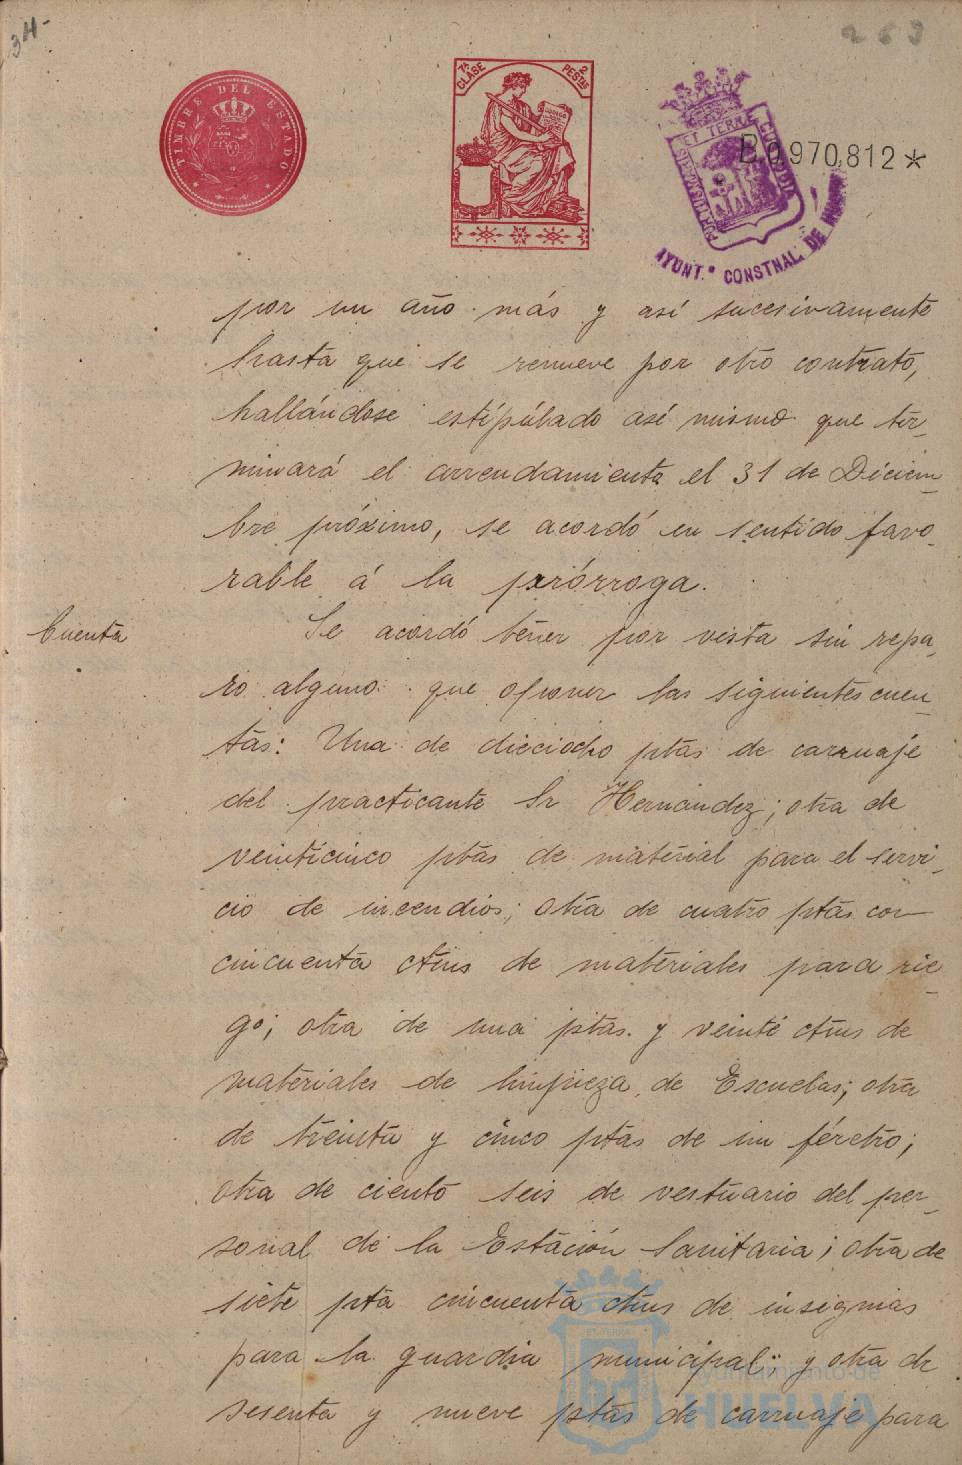 34-
263
TIMBRE DEL ESTADO
7ª CLASE
2 PESTAS
PORTUS MARIS ET TERRÆ CUSTODIA
AYUNT.º CONSTNAL. DE HUELVA
B0,970,812*
por un año más y así sucesivamente
hasta que se renueve por otro contrato,
hallándose estípúlado así mismo que ter-
minará el arrendamiento el 31 de Diciem-
bre próximo, se acordó en sentido favo-
rable á la prórroga.
Cuenta
Se acordó tener por vista sin repa-
ro alguno que oponer las siguientes cuen-
tas: Una de dieciocho ptas de carruaje
del practicante Sr Hernández; otra de
veinticinco ptas de material para el servi-
cio de incendios; otra de cuatro ptas con
cincuenta ctms de materiales para rie-
go; otra de una ptas. y veinte ctms de
materiales de limpieza de Escuelas; otra
de treinta y cinco ptas de un féretro;
otra de ciento seis de vestuario del per-
sonal de la Estación Sanitaria; otra de
siete pta cincuenta ctms de insignias
para la guardia municipal; y otra de
sesenta y nueve ptas de carruaje para
Ayuntamiento de
HUELVA